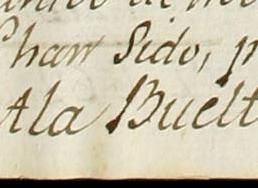 han Sido, p
Ala Buelt